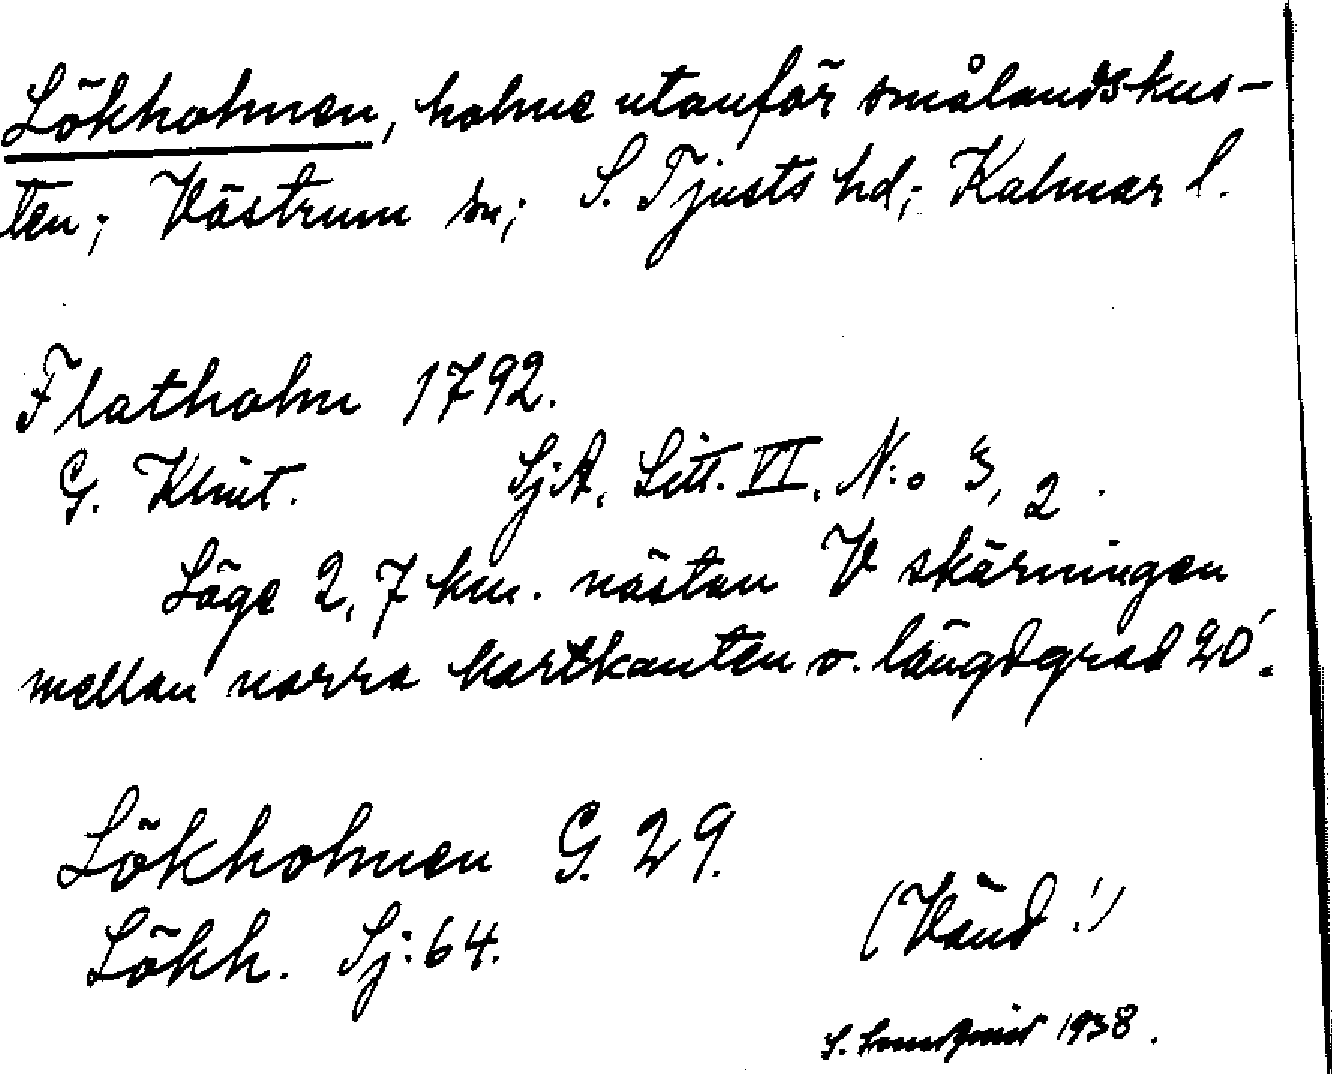 Lökholmen, holme utanför smålandskus-
ten; Västrum sn; S. Tjusts hd; Kalmar l.
Flatholm 1792.
G. Klint. SjA, Litt. VI, N:o 3, 2.
Läge 2,7 km. nästan V skärningen
mellan norra kartkanten o. längdgrad 20'.
Lökholmen G. 29.
Lökh. Sj:64.
(Vänd!)
S. 1938.